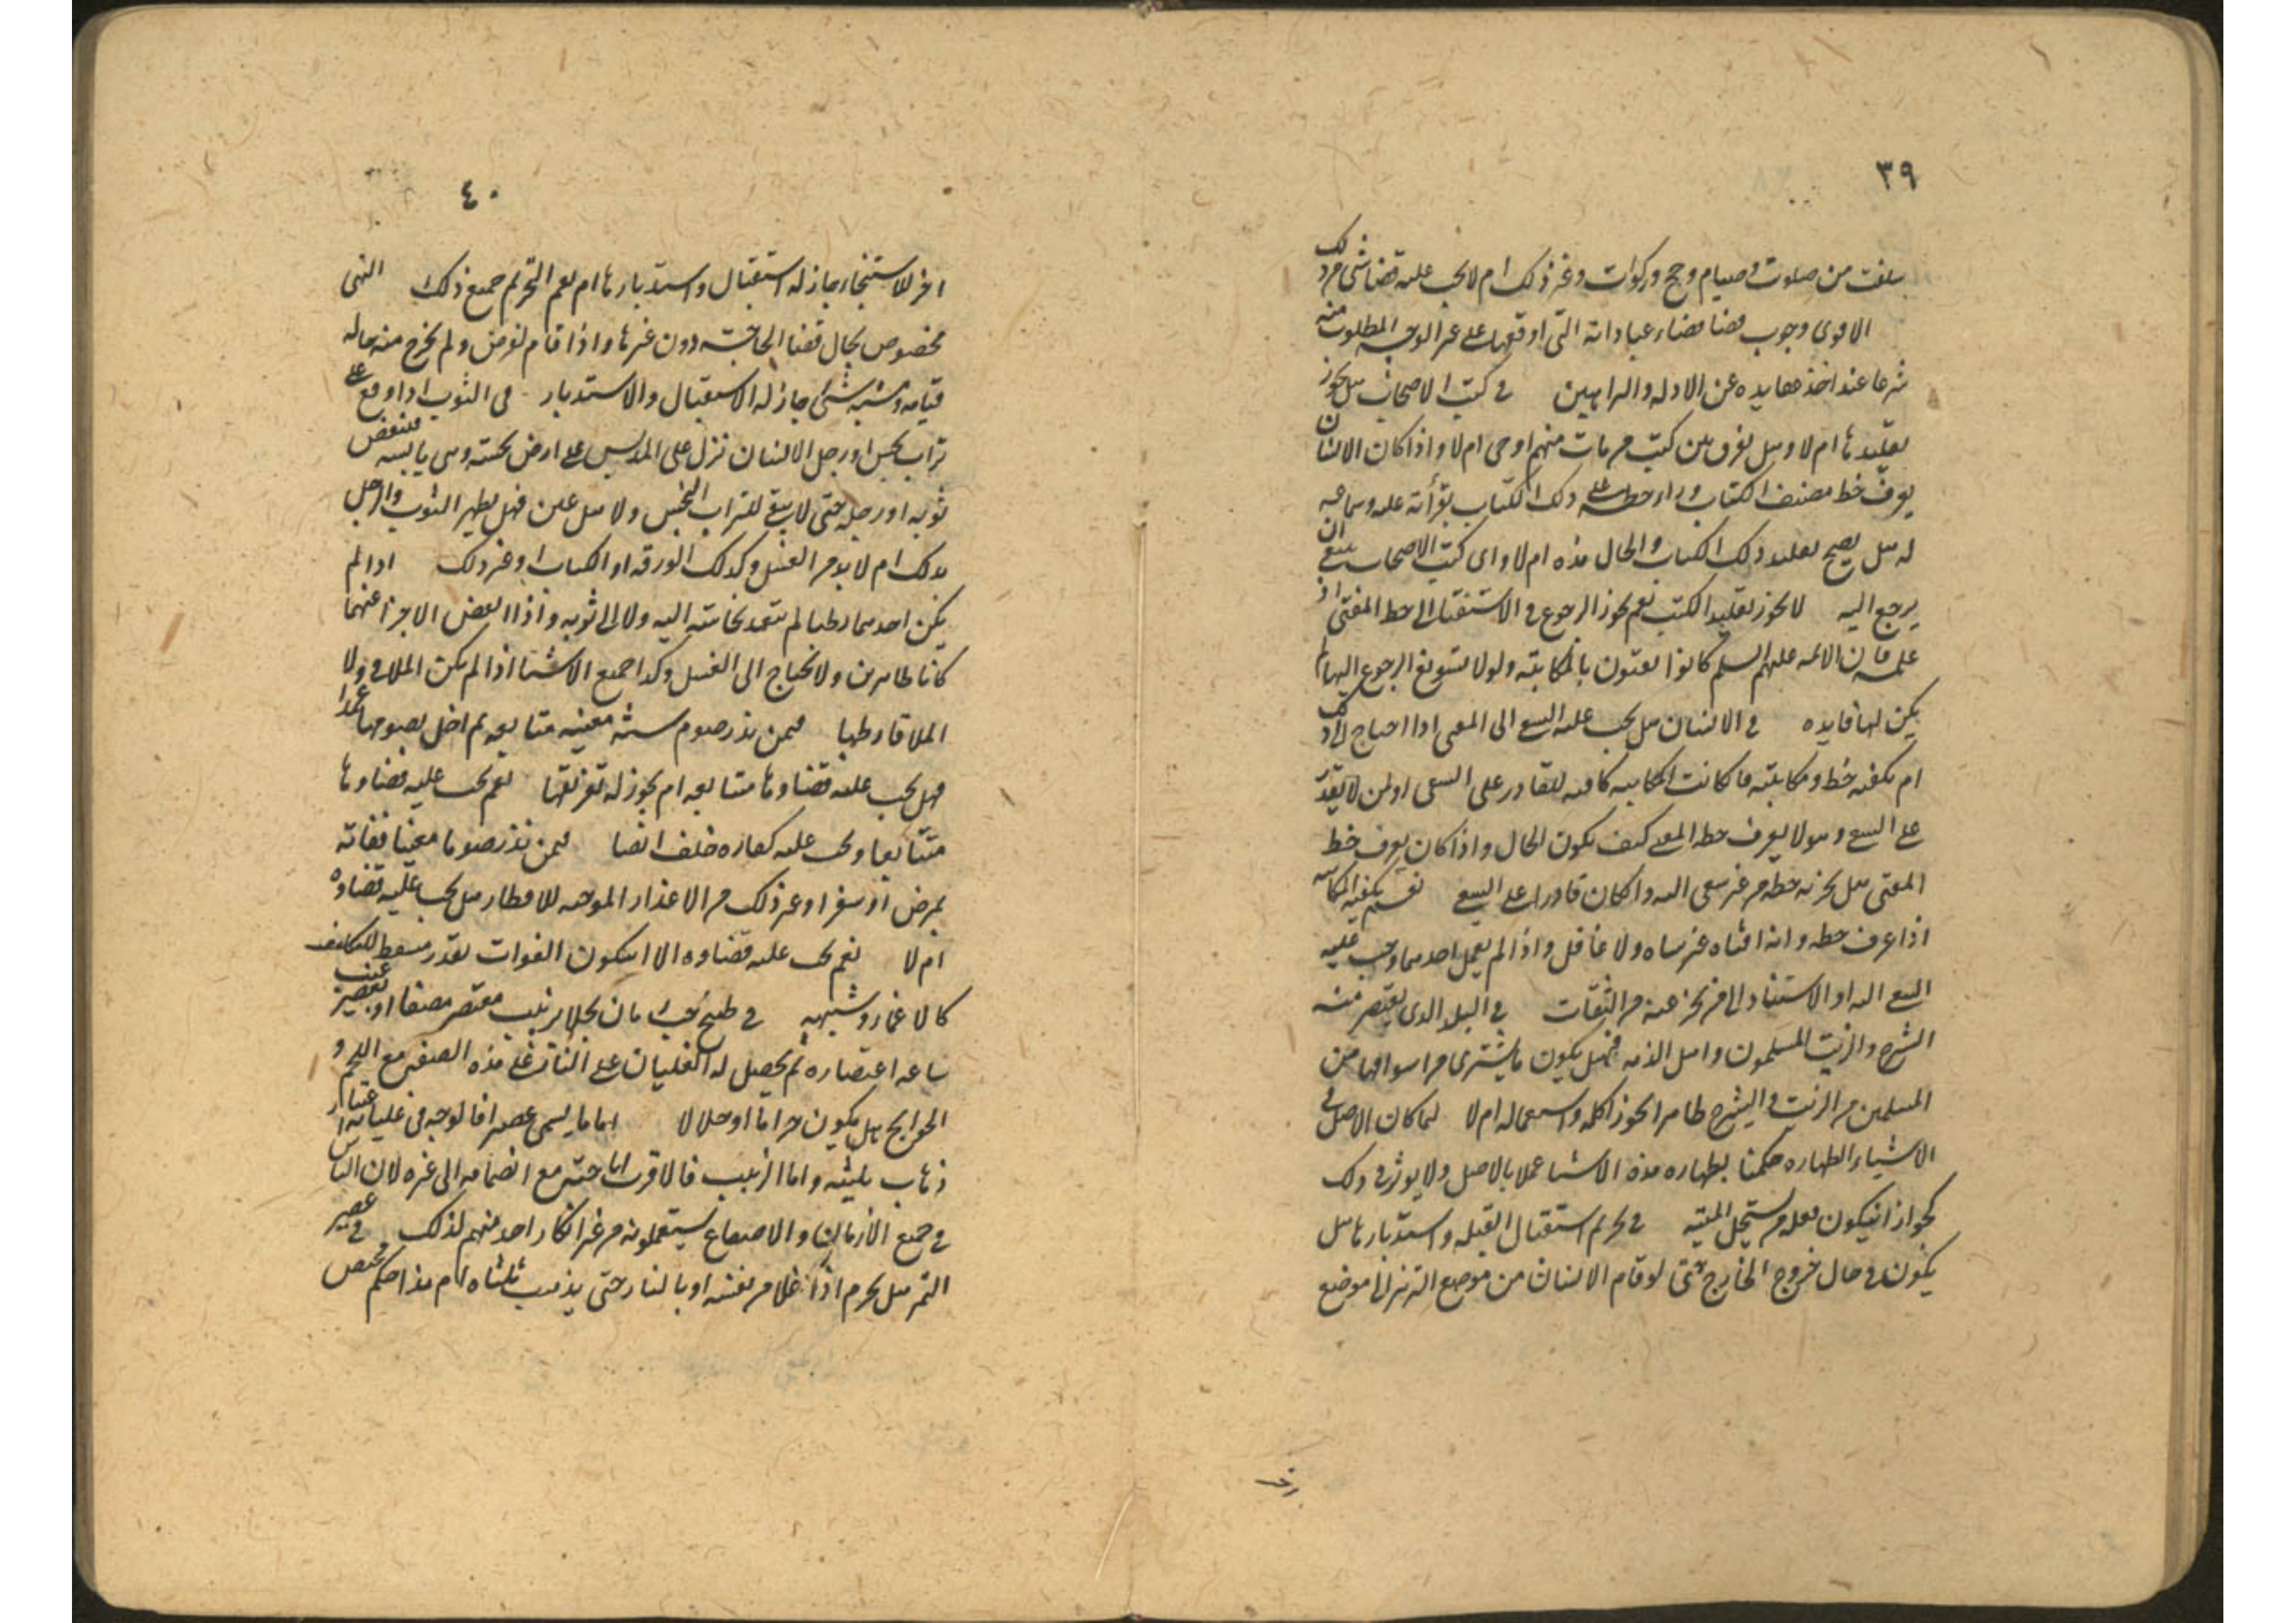 ٣٩
سلفت من صلوت وصيام وحج وزكوات وغير ذلك ام لا يجب عليه قضا شي من ذلك
الاقوى وجوب قضا عباداته التي اوقعها على غير الوجه المطلوب منه
شرعا عند اخذ عقايده عن الادله والبراهين في كتب الاصحاب هل يجوز
تقليدها ام لا وهل يفرق بين كتب من مات منهم او حي ام لا واذا كان الانسان
يعرف خط مصنف الكتاب وراء خطه على ذلك الكتاب بقرأته عليه وسماعه
له هل يصح تقليد ذلك الكتاب والحال هذه ام لا واي كتب الاصحاب ينبغي ان
يرجع اليه لا يجوز تقليد الكتب نعم يجوز الرجوع في الاستفتاء الى خط المفتي اذ
علمه فان الائمه عليهم السلم كانوا يفتون بالمكاتبة ولولا تسويغ الرجوع اليها لم
يكن لها فايده في الانسان هل يجب عليه السعي الى المفتي اذا احتاج الى ذلك
ام يكفيه خط ومكاتبته فاكانت المكاتبه كافيه للقادر على السعي او لمن لا يقدر
على السعي وهو لا يعرف خط المفتي كيف يكون الحال واذا كان يعرف خط
المفتي هل يجزيه خطه من غير سعي اليه وان كان قادرا على السعي نعم يكفيه المكاتبه
اذا عرف خطه وانه افتاه غير ساه ولا غافل واذا لم يعمل احدهما وجب عليه
السعي اليه او الاستناد الى من يخبر عنه من الثقات في البلد الذي يعتصر منه
الشيرج والزيت المسلمون واهل الذمه فهل يكون ما يشترى من اسواقها من
المسلمين من الزيت والشيرج طاهرا يجوز اكله واستعماله ام لا لما كان الاصل في
الاشياء الطهاره حكمنا بطهاره هذه الاشيا عملا بالاصل ولا يوثر في ذلك
كجواز ان يكون فعله من يستحل الميته في تحريم استقبال القبله واستدبارها هل
يكون في حال خروج الخارج حتى لو قام الانسان من موضع التبرز الى موضع
٤٠
اخر للاستنجاء جاز له استقبال واستدبارها ام يعم التحريم جميع ذلك النهي
مخصوص بحال قضا الحاجة دون غيرها واذا قام لغرض ولم يخرج منه حاله
قيامه ومشيه شي جاز له الاستقبال والاستدبار في الثوب اذا وقع على
تراب نجس او رجل الانسان نزل على المداس على ارض نجسته وهي يابسه فينفض
ثوبه او رجله حتى لا يبقى للتراب النجس ولا هل عين فهل يطهر الثوب والرجل
بذلك ام لا بد من الغسل وكذلك الورقه او الكتاب او غير ذلك اذا لم
يكن احدهما رطبا لم تتعد نجاسته اليه ولا الى ثوبه واذا انفض الاجزا عنهما
كانا طاهرين ولا يحتاج الى الغسل وكذا جميع الاشيا اذا لم يكن الملاقي ولا
الملاقا رطبا فيمن نذر صوم سنة معينه متتابعه ثم اخل بصومها عمدا
فهل يجب عليه قضاوها متتابعه ام يجوز له تفريقها نعم يجب عليه قضاوها
متتابعا ويجب عليه كفاره خلف ايضا فيمن نذر صوما معينا ففاته
بمرض او سفر او غير ذلك من الاعذار الموجبه للافطار هل يجب عليه قضاوه
ام لا نعم يجب عليه قضاوه الا ان يكون الفوات بعذر مسقط للتكليف
كالاغماء وشبهه في طبخ بان يحلا بزبيب معتصر مصفا او بعصير عنب
ساعه اعتصاره ثم يحصل له الغليان على النار على هذه الصفه مع اللحم و
الحوايج هل يكون حراما او حلالا اما ما يسمى عصيرا فالوجه في غليانه اعتبار
ذهاب ثلثيه واما الزبيب فالاقرب اباحته مع انضمامه الى غيره لان الناس
في جميع الازمان والاصقاع يستعملونه من غير انكار احد منهم لذلك في عصير
التمر هل يحرم اذا غلا من نفسه او بالنار حتى يذهب ثلثاه ام هذا حكم مختص